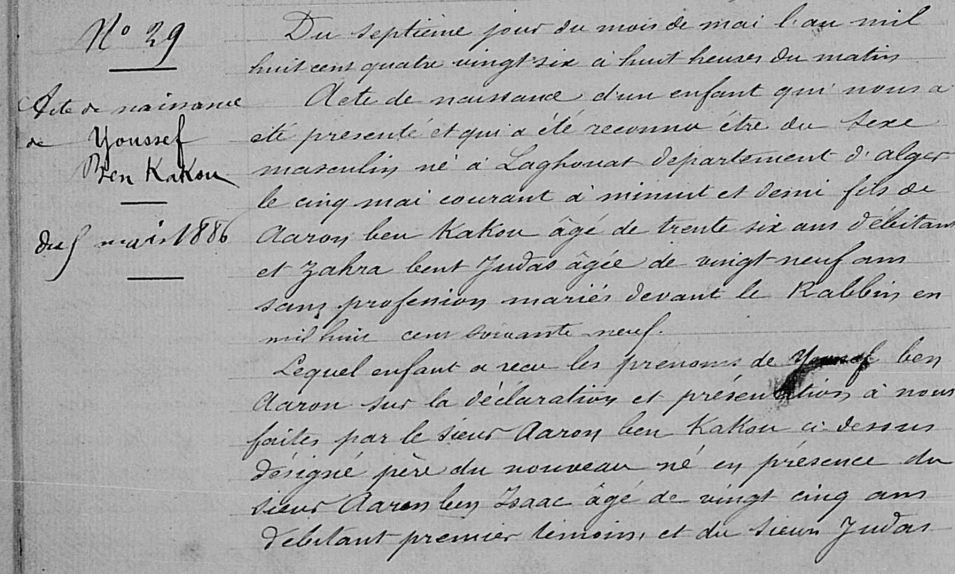 No 29
Acte de naissance
de Youssef
Ben Kakou
du 5 mai 1886
Du septième jour du mois de mai l'an mil
huit cent quatre vingt six à huit heures du matin
Acte de naissance d'un enfant qui nous a
été présenté et qui a été reconnu être du sexe
masculin né à Laghouat département d'alger
le cinq mai courant à minuit et demi fils de
Aaron ben Kakou âgé de trente six ans débitant
et Zahra bent Judas âgée de vingt neuf ans
sans profession mariés devant le Rabbin en
mil huit cent soixante neuf.
Lequel enfant a reçu les prénoms de Youssef ben
Aaron sur la déclaration et présentation à nous
faites par le sieur Aaron ben Kakou ci dessus
désigné père du nouveau né en présence du
sieur Aaron ben Isaac âgé de vingt cinq ans
débitant premier témoin, et du sieur Judas